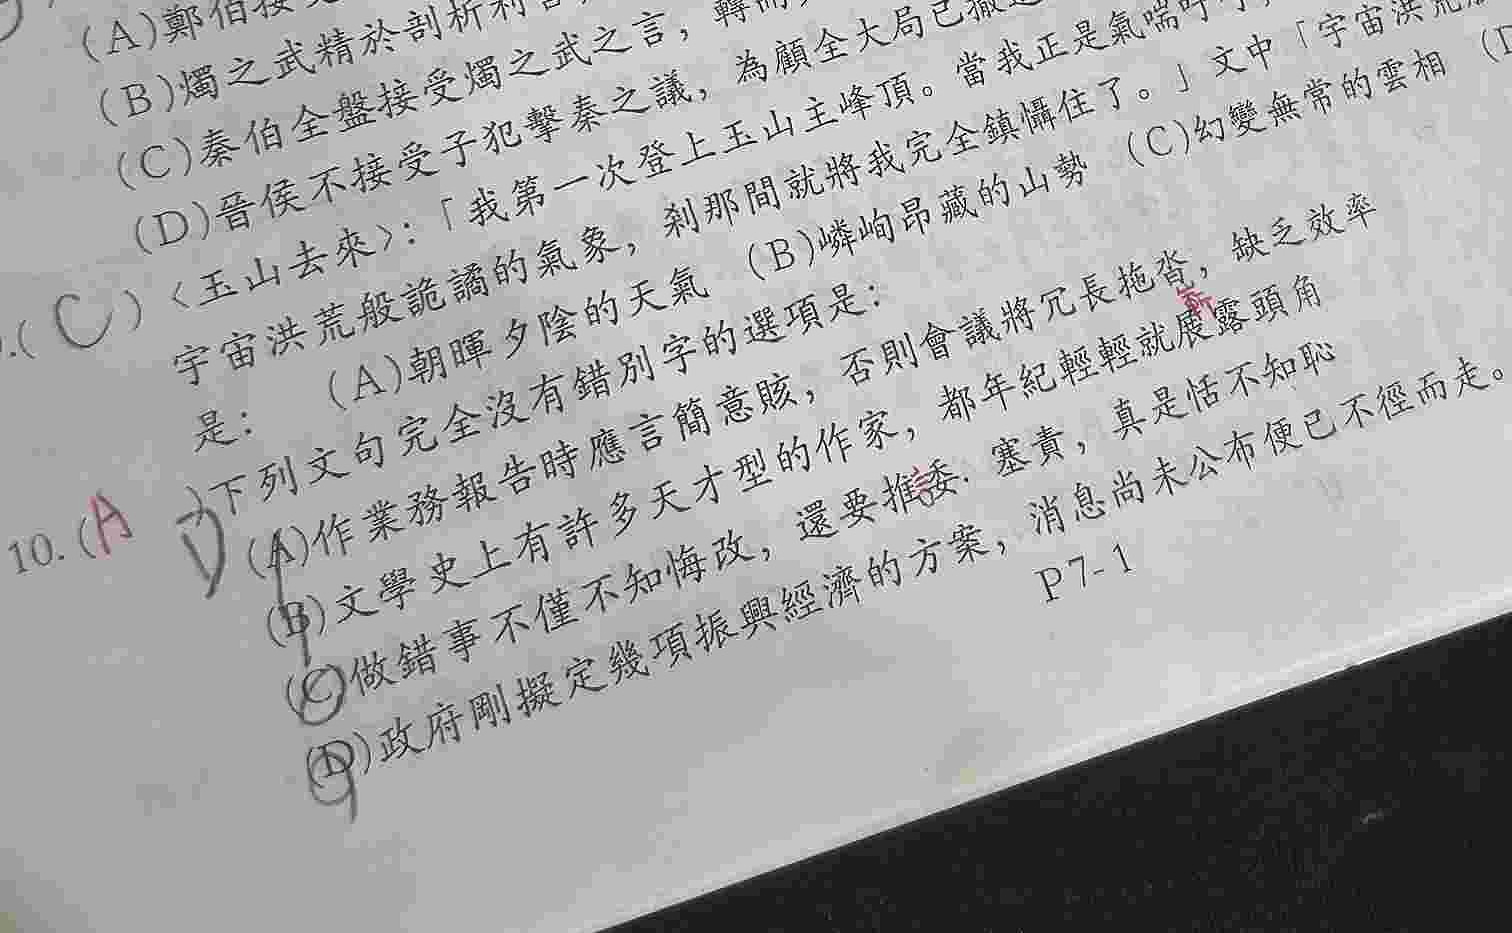 (A)鄭伯接
(B)燭之武精於剖析利害
(C)秦伯全盤接受燭之武之言，轉而
(D)晉侯不接受子犯擊秦之議，為顧全大局已撤退
.( C )〈玉山去來〉：「我第一次登上玉山主峰頂。當我正是氣喘吁吁，
宇宙洪荒般詭譎的氣象，剎那間就將我完全鎮懾住了。」文中「宇宙洪荒般
是： (A)朝暉夕陰的天氣 (B)嶙峋昂藏的山勢 (C)幻變無常的雲相
10.(A D)下列文句完全沒有錯別字的選項是：
(A)作業務報告時應言簡意賅，否則會議將冗長拖沓，缺乏效率
斬
(B)文學史上有許多天才型的作家，都年紀輕輕就展露頭角
(C)做錯事不僅不知悔改，還要推委．塞責，真是恬不知恥
(D)政府剛擬定幾項振興經濟的方案，消息尚未公布便已不徑而走。
P7-1